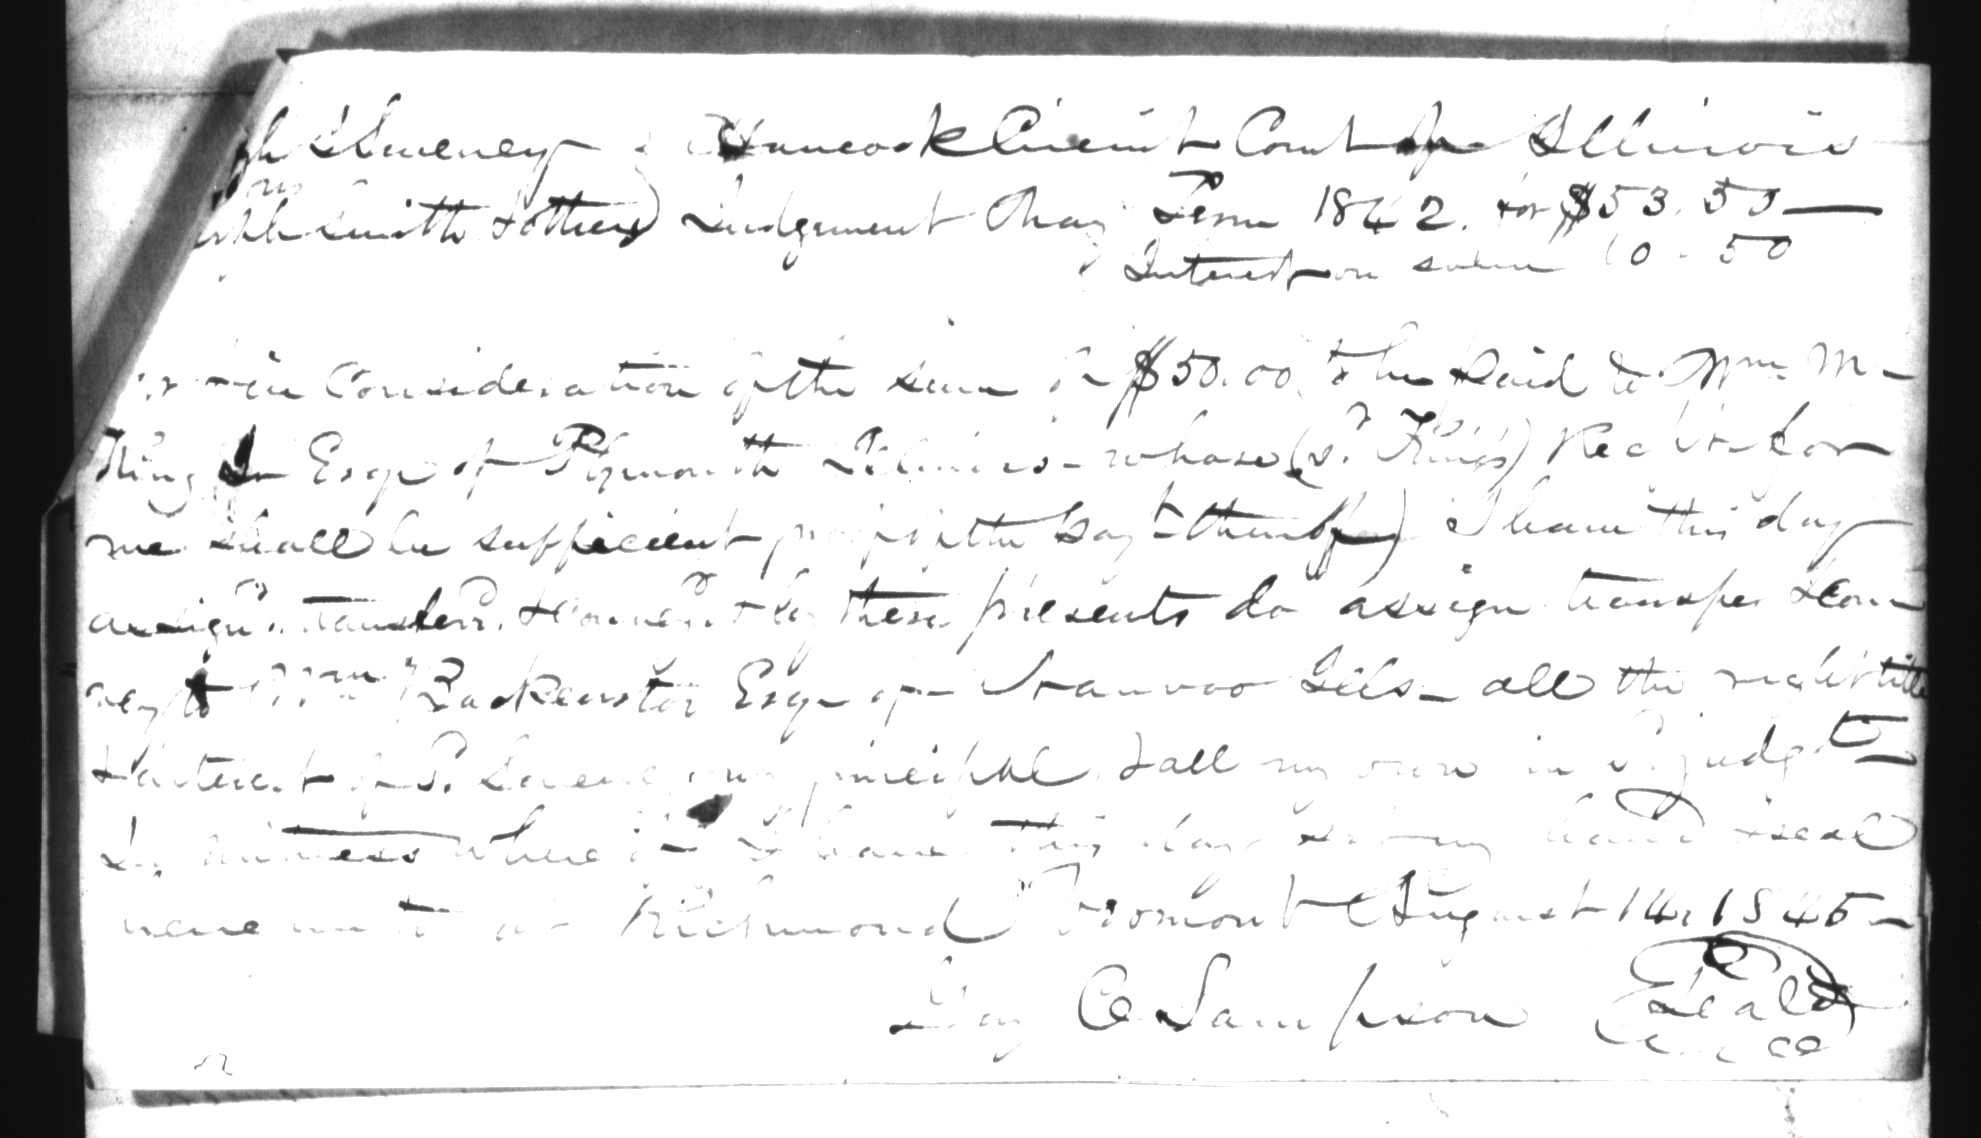 ph Sweney Hancock Circuit Court of Illinois
vs
Joseph Smith & others) Judgement May Term 1842. for $53.53—
Interest on same 10.50
in Consideration of the sum of $50.00 to be paid to Wm M
King Jr Esqr of Plymouth Illinois - whose (sd. King's) Rect for
me shall be sufficient proof of the payt thereof) I have this day
assignd. transferr. & convey. & by these presents do assign transfer & con
vey to Wm Backenstor Esqr of Nauvoo Ills - all the right title
& interest of sd. Sweney my principal & all my own in sd. judgt—
In witness where of I have this day set my hand & seal
hereunto at Richmond Vermont August 14. 1845—
Guy C Sampson Seal